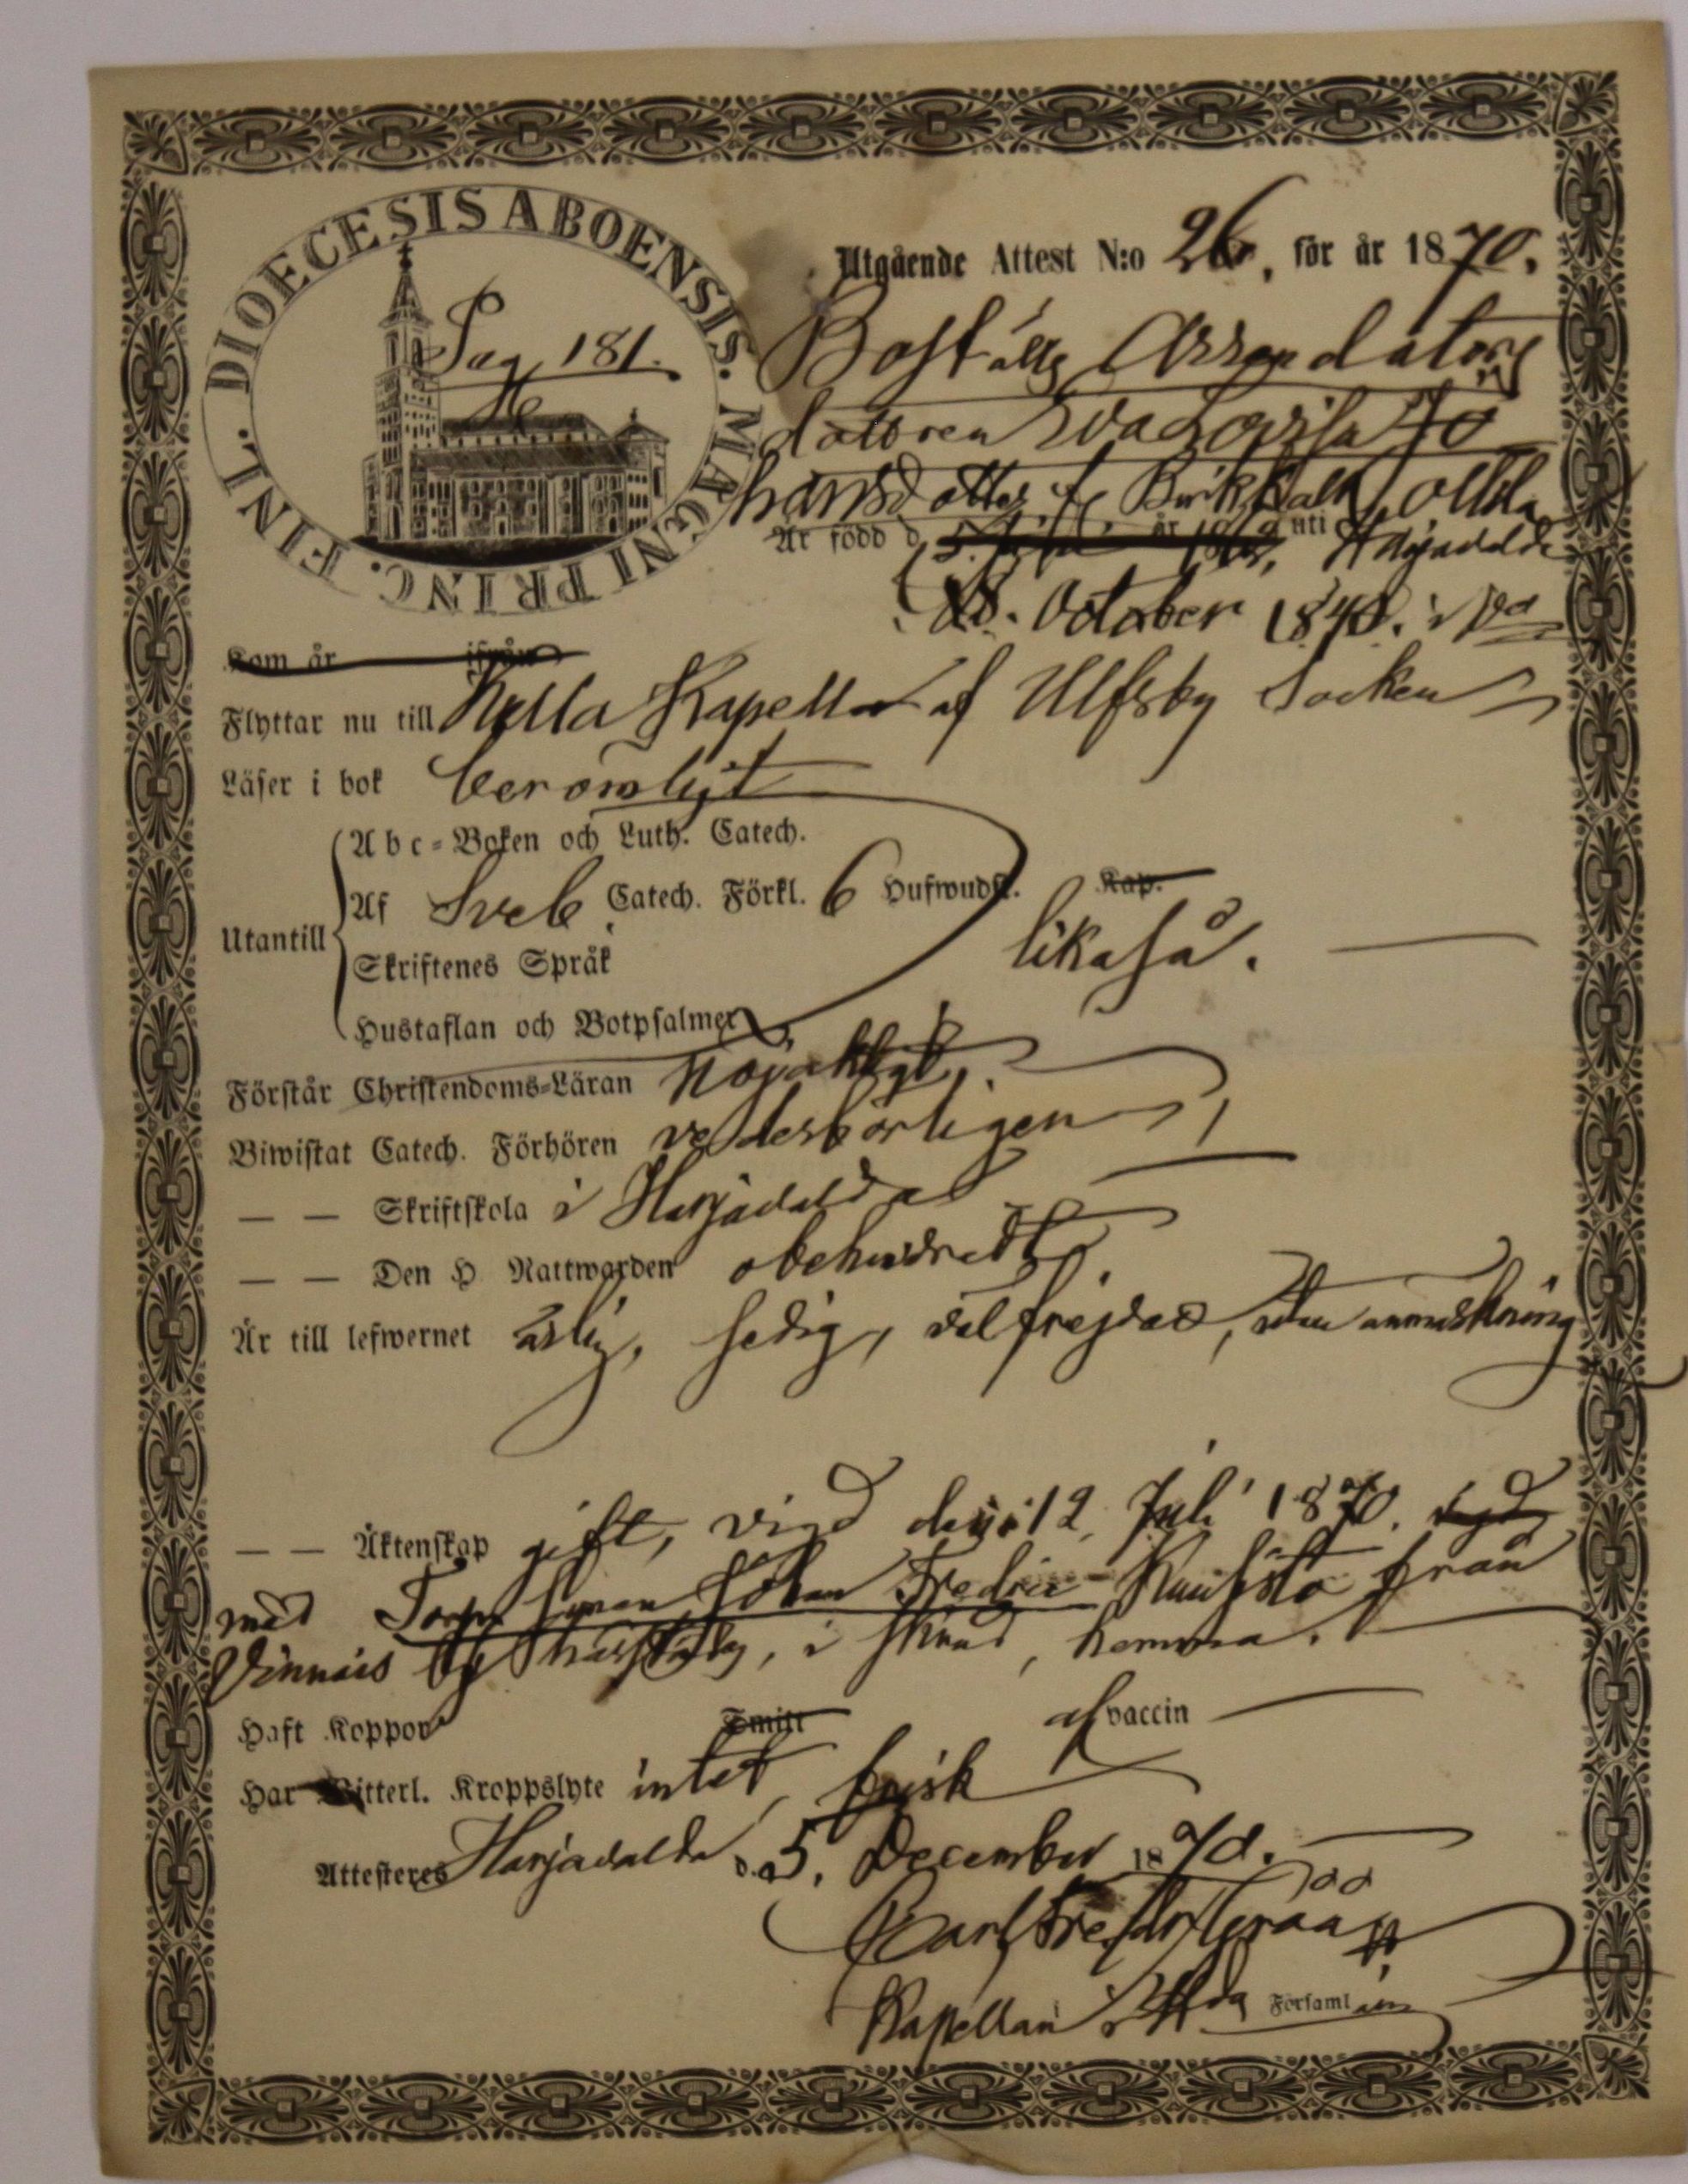 DIOECESIS ABOENSIS. MAGNI PRINC. FINL.
Pag 181.
Utgående Attest N:o 26, för år 1870.
Boställs Arrendators
dottren Eva Lovisa Jo
hansdotter
Är född d. 5. år uti Harjavalda
October 1840. i
Kom år ifrån
Flyttar nu till Kapell af Ulfsby Socken
Läser i bok berömligt
Utantill
Abc-Boken och Luth. Catech.
Af Sveb. Catech. Förkl. 6 Hufwudst. Kap.
likaså.
Skriftenes Språk
Hustaflan och Botpsalmer
Förstår Christendoms-Läran nöjaktigt,
Biwistat Catech. Förhören vederbörligen
— — Skriftskola i Harjavalda
— — Den H Nattwarden obehindradt.
Är till lefwernet ärlig, sedig, välfrejdad, utan anmärkning
— — Äktenskap gift, vigd den 12 Juli 1870.
med Johan Fredric från
by, hemma.
Haft Koppor Smitt af vaccin
Har Witterl. Kroppslyte intet, frisk
Attesteres Harjavalda d. 5. December 1870.
Carl Fredr
Kapellan i Församling